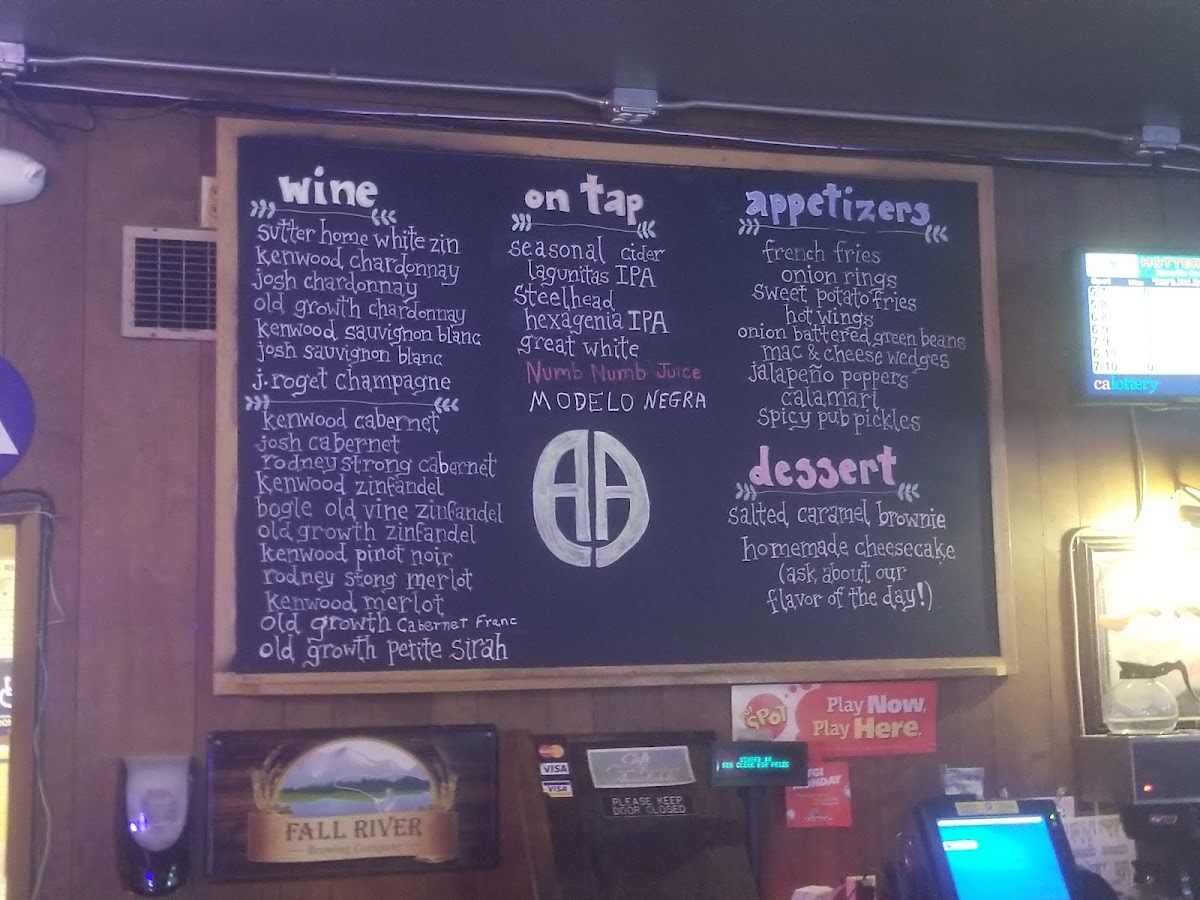 wine
sutter home white zin
kenwood chardonnay
josh chardonnay
old growth chardonnay
kenwood sauvignon blanc
josh sauvignon blanc
j. roget champagne
kenwood cabernet
josh cabernet
rodney strong cabernet
kenwood zinfandel
bogle old vine zinfandel
old growth zinfandel
kenwood pinot noir
rodney stong merlot
kenwood merlot
old growth Cabernet Franc
old growth petite sirah
on tap
seasonal cider
lagunitas IPA
Steelhead
hexagenia IPA
great white
Numb Numb Juice
MODELO NEGRA
AA
appetizers
french fries
onion rings
sweet potato fries
hot wings
onion battered green beans
mac & cheese wedges
jalapeño poppers
calamari
spicy pub pickles
dessert
salted caramel brownie
homemade cheesecake
(ask about our
flavor of the day!)
HOTTER
calottery
SPOT
Play Now,
Play Here.
FALL RIVER
Brewing Company
MasterCard
VISA
VISA
PLEASE KEEP
DOOR CLOSED